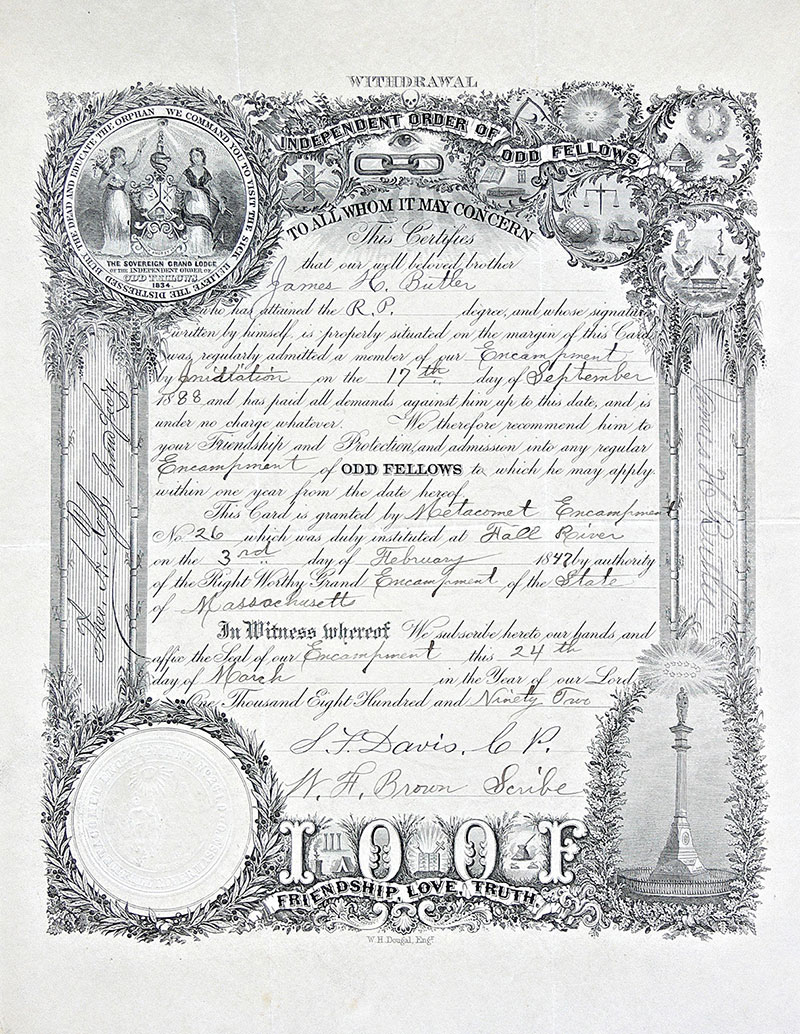 WITHDRAWAL
INDEPENDENT ORDER OF ODD FELLOWS.
WE COMMAND YOU TO VISIT THE SICK RELIEVE THE DISTRESSED BURY THE DEAD AND EDUCATE THE ORPHAN
THE SOVEREIGN GRAND LODGE
OF THE INDEPENDENT ORDER OF
ODD FELLOWS
1834
TO ALL WHOM IT MAY CONCERN
This Certifies
that our well beloved brother
James H. Butler
who has attained the R.P. degree, and whose signature
written by himself, is properly situated on the margin of this Card
was regularly admitted a member of our Encampment
by Initiation on the 17th day of September
1888 and has paid all demands against him up to this date, and is
under no charge whatever. We therefore recommend him to
your Friendship and Protection, and admission into any regular
Encampment of ODD FELLOWS to which he may apply
within one year from the date hereof.
This Card is granted by Metacomet Encampment
No 26 which was duly instituted at Fall River
on the 3rd day of February 1847 by authority
of the Right Worthy Grand Encampment of the State
of Massachusetts
In Witness whereof We subscribe hereto our hands and
affix the Seal of our Encampment this 24th
day of March in the Year of our Lord
One Thousand Eight Hundred and Ninety Two
S. F. Davis. C P.
W. F. Brown Scribe
Theo. A. Ross Grand Secy
James H. Butler
I O O F
FRIENDSHIP, LOVE, TRUTH.
W.H. Dougal, Engr.